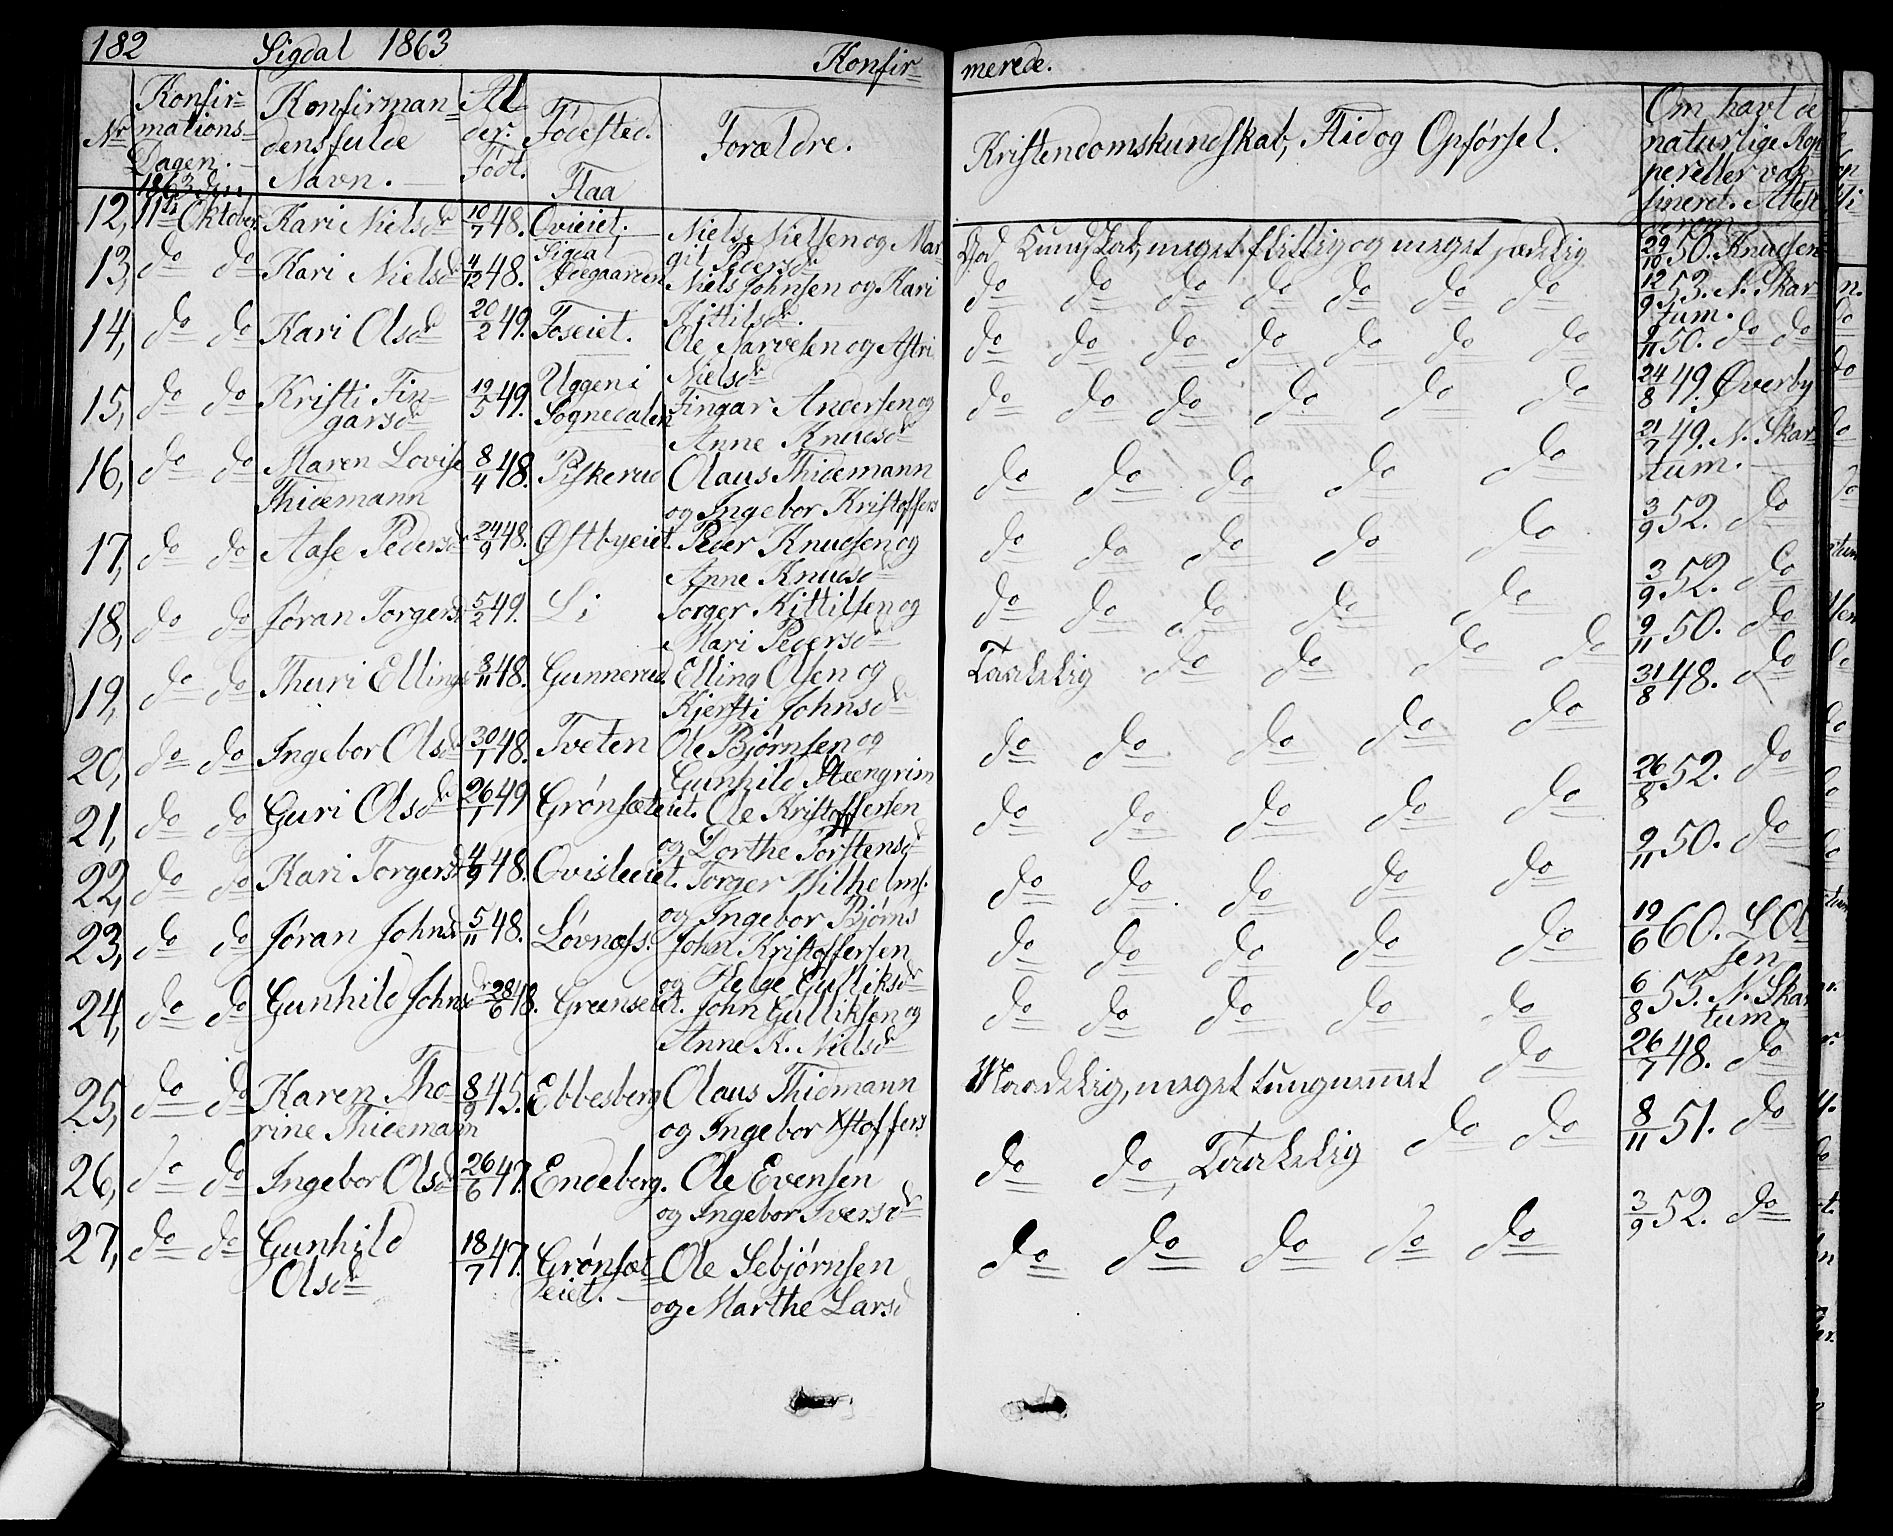 182 Sigdal 1863 Konfir=
merede.
Nr
Konfir=
mations=
Dagen.
1863 den
Konfirman=
densfulde
Navn.
Al=
der.
Født.
Fødested.
Flaa
Forældre.
Kristendomskundskab, Flid og Opførsel.
Om havt de
naturlige Kop
per eller vak
sineret. Attest
12, 11te Oktober Kari Nielsd 10/7 48. Qvieiet. Niels Nielsen og Mar
git Pedersd
God Kundskab, meget flittig og meget sædelig 29/10 50. Knudsen
13, do do Kari Nielsd 4/12 48. Sigdal
Niels Johnsen og Kari
Kittilsd
do do do do do do do 12/9 53. N. Skar
tum.
14, do do Kari Olsd 20/2 49. Foseiet. Ole Narvesen og Astri
Nielsd
do do do do do do do 9/11 50. do do
15, do do Kristi Fin=
garsd 19/5 49. Uggen i
Sognedalen Fingar Andersen og
Anne Knudsd
do do do do do do 24/8 49. Øverby
16, do do Maren Lovise
Thidemann 8/4 48. Piskerud Olaus Thidemann
og Ingebor Kristoffers
do do do do do 21/7 49. N. Skar
tum.
17, do do Aase Pedersd 24/9 48. Østbyeiet. Peder Knudsen og
Anne Knudsd
do do do do do 3/9 52. do
18, do do Jøran Torgersd 5/2 49. Li Torger Kittilsen og
Mari Pedersd
do do do do do 3/9 52. do
19, do do Thuri Ellings 8/11 48. Gunnerud. Elling Olsen og
Kjersti Johnsd
Taalelig do do do do 9/11 50. do
20, do do Ingebor Olsd 30/1 48. Tveten Ole Bjørnsen og
Gunhild Steengrim
do do do do do 31/8 48. do
21, do do Guri Olsd 26/1 49 Grønsæteiet. Ole Kristoffersen
og Dorthe Torstensd
do do do do do 26/8 52. do
22, do do Kari Torgersd 4/9 48. Qvisleeiet. Torger Vilhelms.
og Ingebor Bjørns
do do do do do 9/11 50. do
23, do do Jøran Johnsd 5/11 48. Løvnæss. John Kristoffersen
og Helge Gulliksd
do do do do do 19/6 60. L Ol
sen
24, do do Gunhild Johnsdr 28/6 48. Grænseiet. John Gulliksen og
Anne K. Nielsd
do do do do do 6/8 53. N. Skar
tum.
25, do do Karen Tho
rine Thidemann 8/9 45. Ebbesberg Olaus Thidmann
og Ingebor Xstoffers
Maadelig, meget tungnemet do 26/7 48. do
26, do do Ingebor Olsd 26/6 47. Endeberg. Ole Evensen
og Ingebor Iversd
do do, Taalelig do do 8/11 51. do
27, do do Gunhild
Olsd 18/7 47. Grønsæt=
eiet. Ole Sebjørnsen
og Marthe Larsd
do do do do do 3/9 52. do